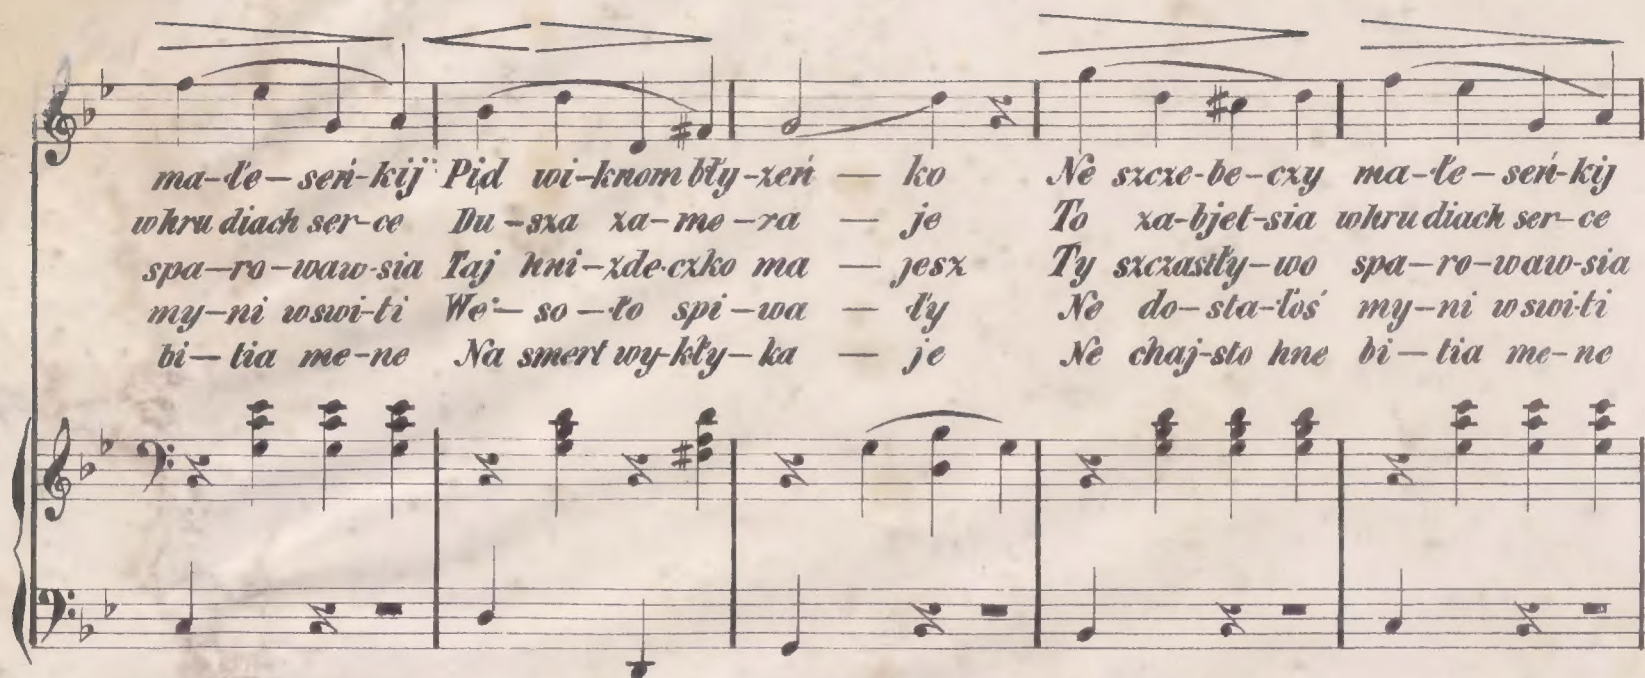 ma-łe-seń-kij Pid wi-knom bły-zeń — ko Ne szcze-be-czy ma-łe-seń-kij
whru diach ser-ce Du-sza za-me-ra — je To za-bjet-sia whru diach ser-ce
spa-ro-waw-sia Taj hni-zde-czko ma — jesz Ty szczastły-wo spa-ro-waw-sia
my-ni wswi-ti We-so-ło spi-wa — ły Ne do-sta-łoś my-ni wswi-ti
bi-tia me-ne Na smert wy-kły-ka — je Ne chaj-sto hne bi-tia me-ne